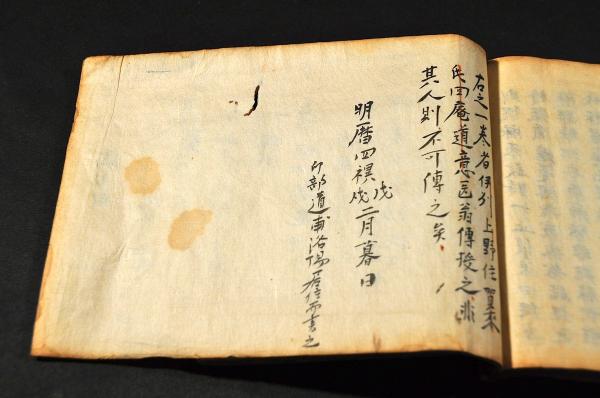 右之一巻者伊列上野住賀来
氏回庵道意医翁傳授之非
其人則不可傳之矣
明暦四禩戊戌二月暮日
印部道甫洛陽居住而書之